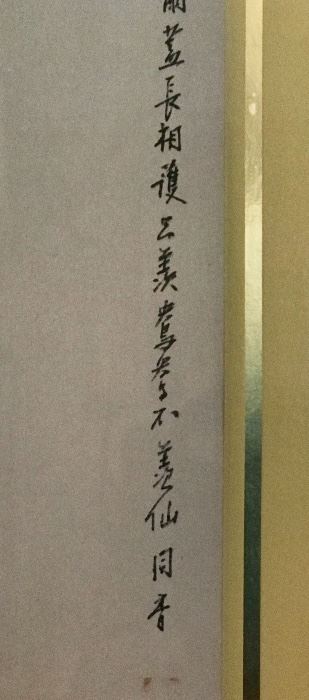 蓋長相護只羨鴛鴦不羨仙同